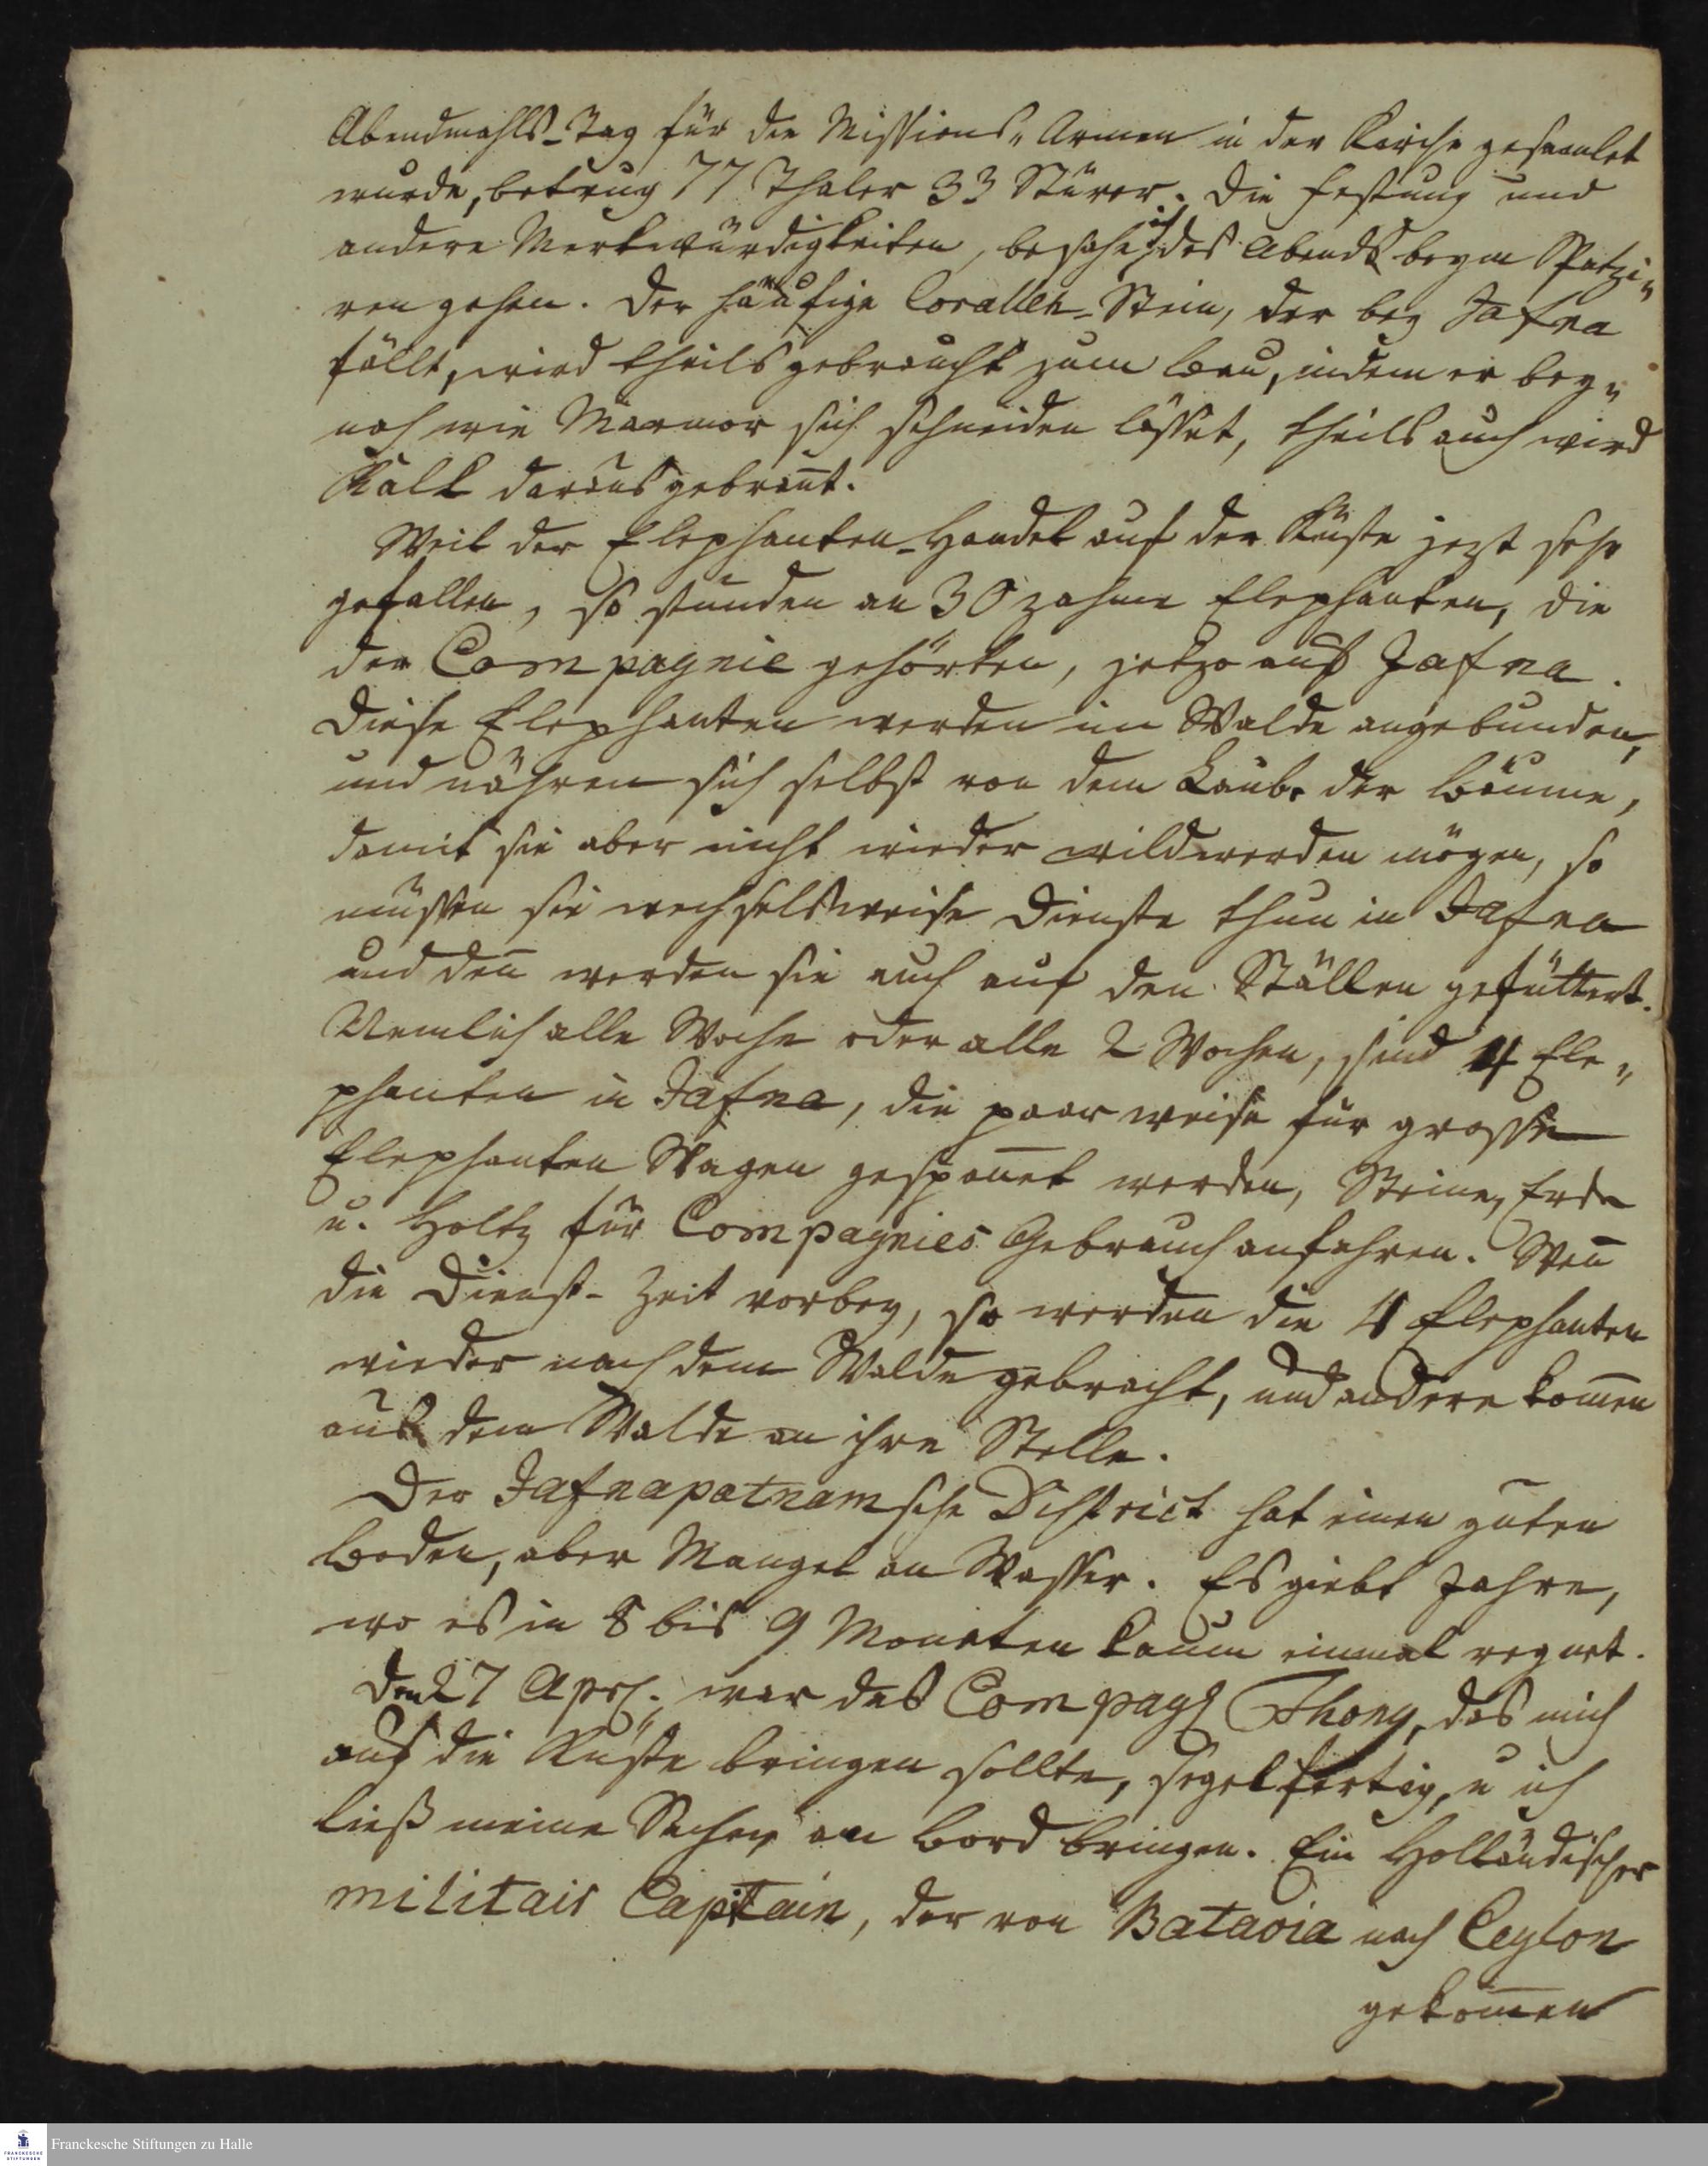 Abendmahls-Tag für die Missions-Armen in der Kirche gesamlet
wurde, betrug 77 Thaler 33 Stüver. Die Festung und
andere Merkwürdigkeiten, besahe ich des Abends beym Spatzi-
ren gehen. Der häufige Corallen-Stein, der bey Jafna
fällt, wird theils gebraucht zum Bau, indem er bey-
nah wie Marmor sich schneiden lässet, theils auch wird
Kalk daraus gebrañt.
Weil der Elephanten-Handel auf der Küste jezt sehr
gefallen, so stunden an 30 zahme Elephanten, die
der Compagnie gehörten, jetzo auf Jafna.
Diese Elephanten werden im Walde angebunden,
und nähren sich selbst von dem Laube der Bäume,
damit sie aber nicht wieder wild werden mögen, so
müssen sie wechselsweise Dienste thun in Jafna
und deñ werden sie auch auf den Ställen gefüttert.
Nemlich alle Woche oder alle 2 Wochen, sind 4 Ele-
phanten in Jafna, die paarweise für grosse
Elephanten Wagen gespañet werden, Steine, Erde
u. Holtz für Compagnies Gebrauch anfahren. Weñ
die Dienst-Zeit vorbey, so werden die 4 Elephanten
wieder nach dem Walde gebracht, und andere kom̄en
aus dem Walde an ihre Stelle.
Der Jafnapatnamsche District hat einen guten
Boden, aber Mangel an Wasser. Es giebt Jahre,
wo es in 8 bis 9 Monaten kaum einmal regnet.
Den 27 Apr. war das Compags Thony, das mich
auf die Küste bringen sollte, segelfertig, u ich
ließ meine Sachen an Bord bringen. Ein Holländischer
militair Capitain, der von Batavia nach Ceylon
gekom̄en
Franckesche Stiftungen zu Halle
FRANCKESCHE
STIFTUNGEN